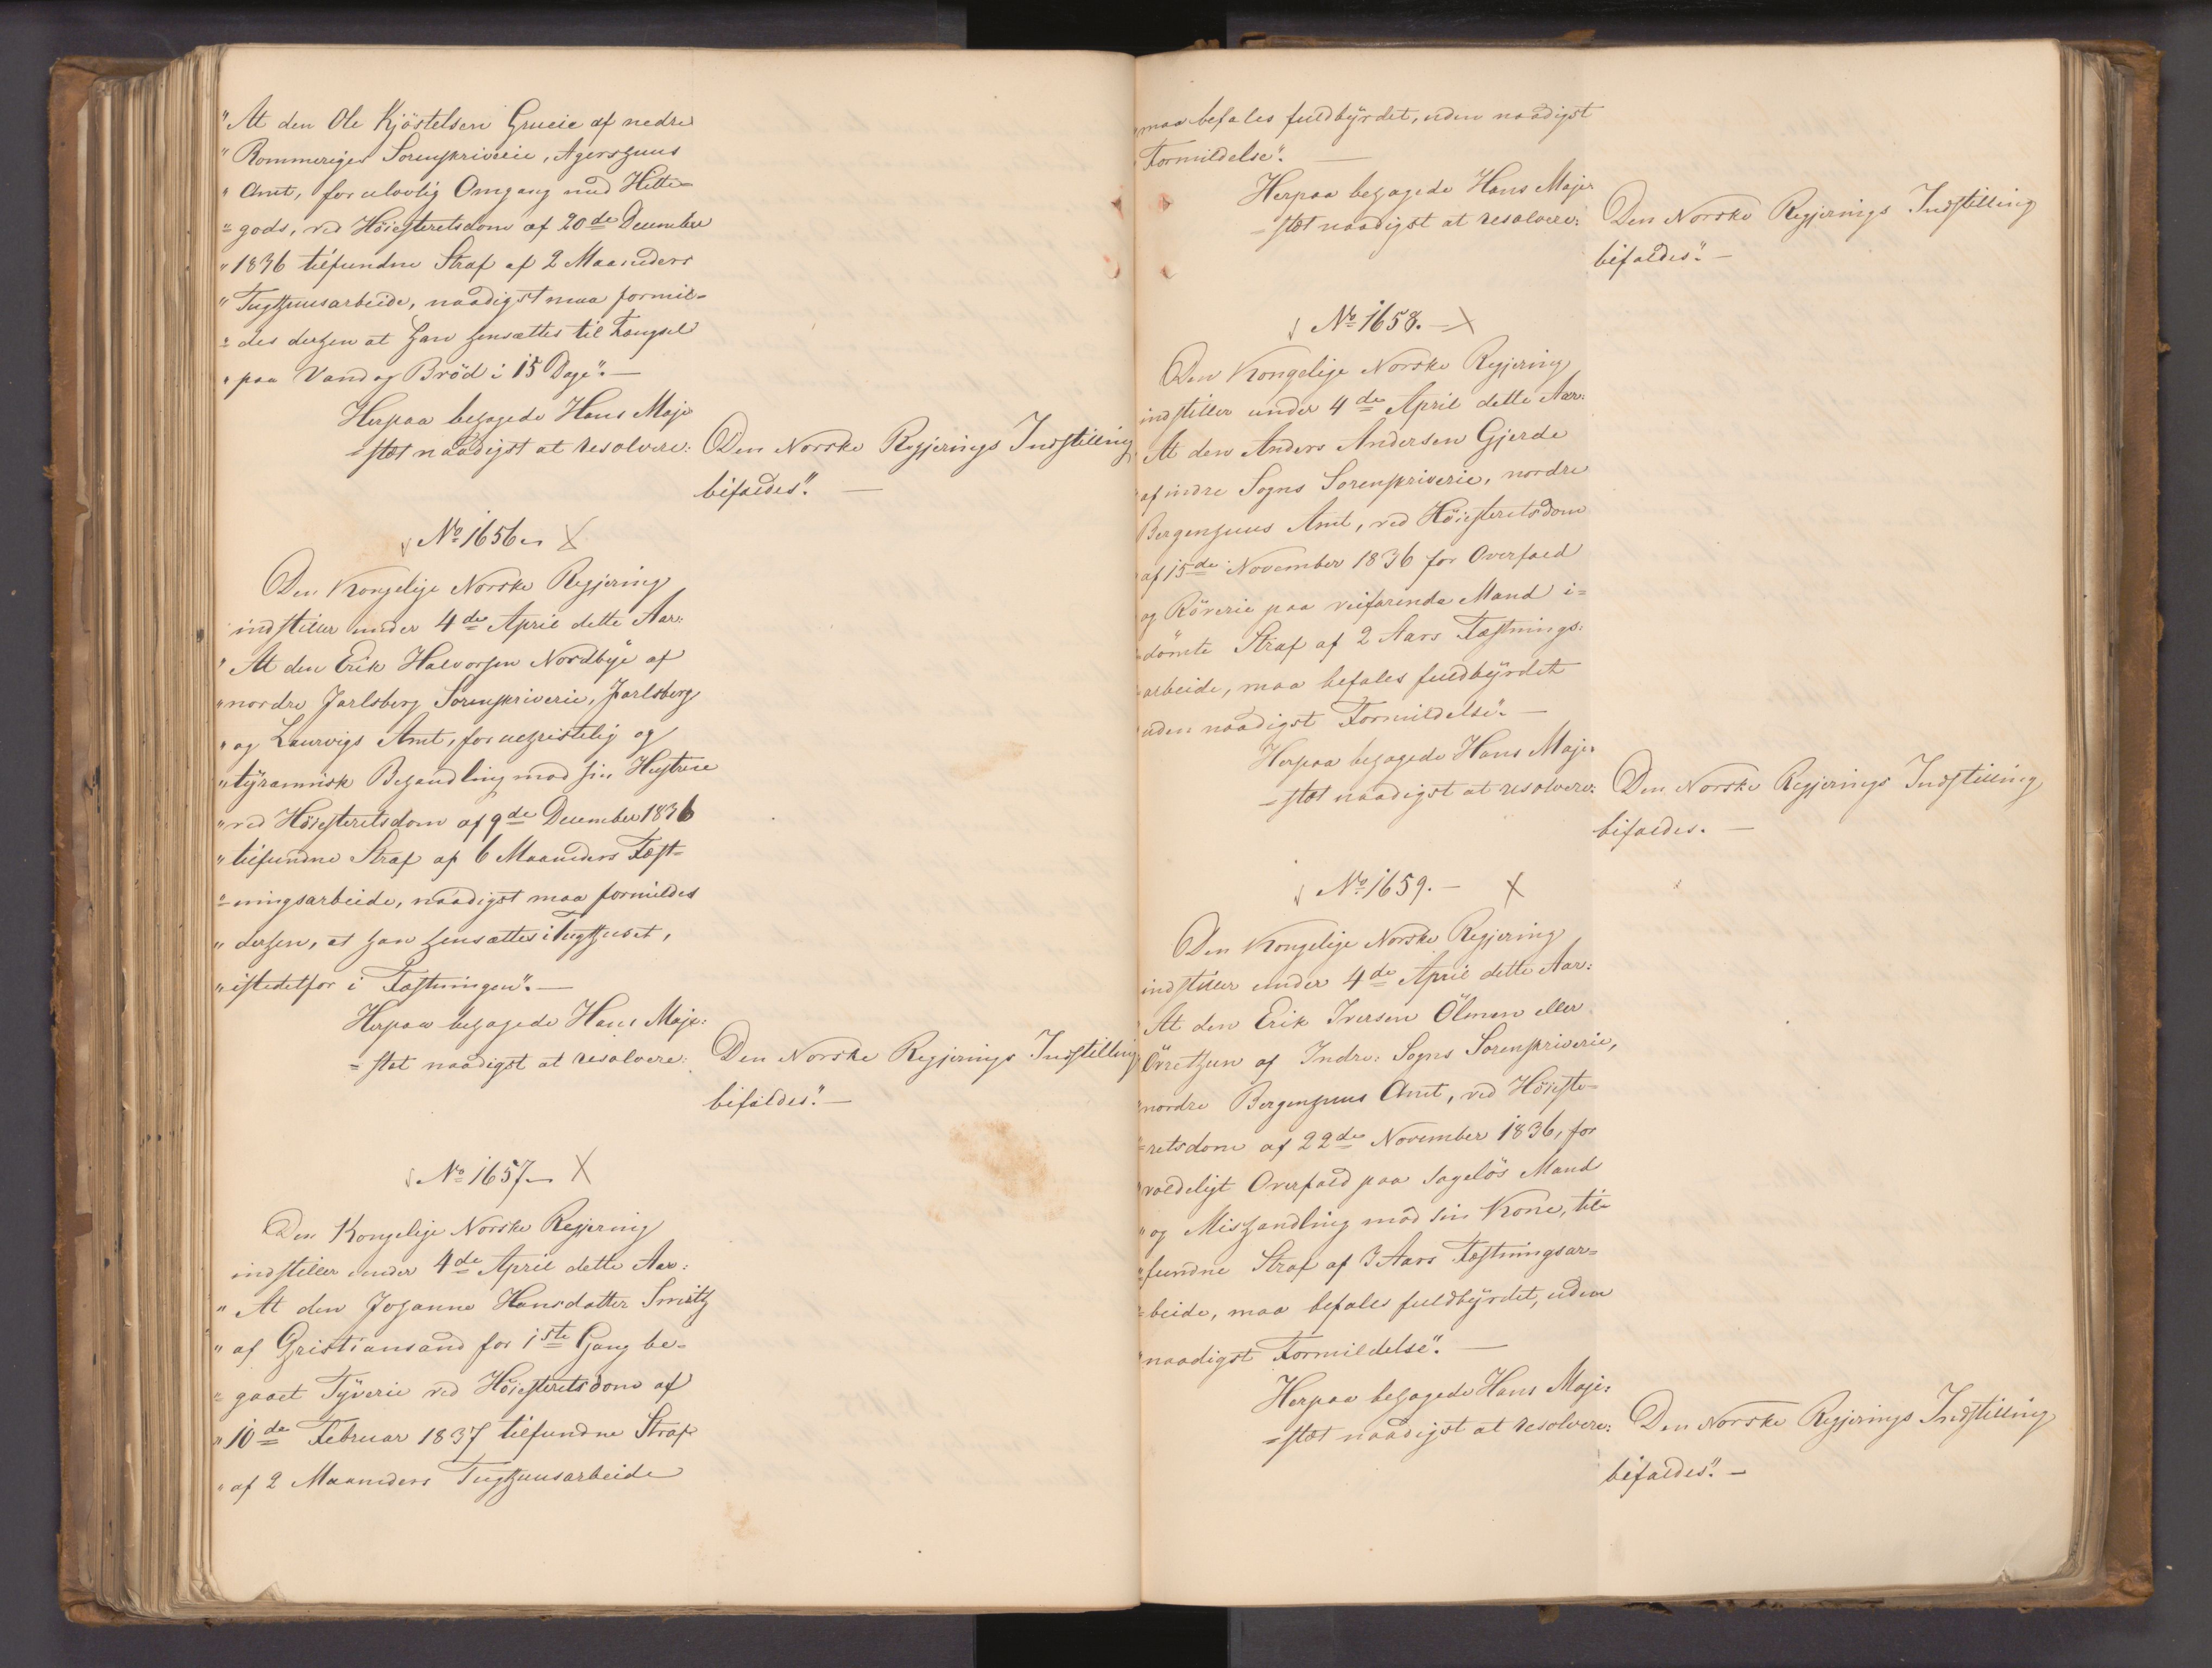 "At den Ole Kjöstelsen Grueie af nedre
"Rommeriges Sorenskriverie, Agershuus
"Amt, for ulovlig Omgang med Hitte-
"gods, ved Höiesteretsdom af 20de December
"1836 tilfundne Straf af 2 Maaneders
"Tugthuusarbeide, naadigst maa formil-
"des derhen at han hensættes til Fængsel
"paa Vand og Bröd i 15 Dage". —
Herpaa behagede Hans Maje-
-stæt naadigst at resolvere: Den Norske Regjerings Indstilling
bifaldes". —
No 1656. X
Den Kongelige Norske Regjering
indstiller under 4de April dette Aar:
"At den Erik Halvorsen Nordbÿe af
"nordre Jarlsberg Sorenskriverie, Jarlsberg
"og Laurvigs Amt, for uchristelig og
"tÿrannisk Behandling mod sin Hustrue
"ved Höiesteretsdom af 9de December 1836
"tilfundne Straf af 6 Maaneders Fæst-
"-ningsarbeide, naadigst maa formildes
"derhen, at han hensættes i Tugthuset,
"istedetfor i Fæstningen". —
Herpaa behagede Hans Maje-
-stæt naadigst at resolvere: Den Norske Regjerings Indstilling
bifaldes". —
No 1657. X
Den Kongelige Norske Regjering
indstiller under 4de April dette Aar:
"At den Johanne Hansdatter Smith
"af Christiansand for 1ste Gang be-
"gaaet Tÿverie ved Höiesteretsdom af
"10de Februar 1837 tilfundne Straf
"af 2 Maaneders Tugthuusarbeide
"maa befales fuldbÿrdet, uden naadigst
"Formildelse". —
Herpaa behagede Hans Maje-
-stæt naadigst at resolvere: Den Norske Regjerings Indstilling
bifaldes". —
No 1658. — X
Den Kongelige Norske Regjering
indstiller under 4de April dette Aar:
At den Anders Andersen Gjerde
"af indre Sogns Sorenskriverie, nordre
Bergenhuus Amt, ved Höiesteretsdom
"af 15de November 1836 for Overfald
og Röverie paa veifarende Mand i-
-dömte Straf af 2 Aars Fæstnings-
-arbeide, maa befales fuldbÿrdet
"uden naadigst Formildelse". —
Herpaa behagede Hans Maje-
-stæt naadigst at resolvere: Den Norske Regjerings Indstilling
bifaldes. —
No 1659. — X
Den Kongelige Norske Regjering
indstiller under 4de April dette Aar:
At den Erik Iversen Ölmen eller
af Indre Sogns Sorenskriverie,
"nordre Bergenhuus Amt, ved Höieste-
"retsdom af 22de November 1836, for
"voldeligt Overfald paa sageslös Mand
"og Mishandling mod sin Kone, til-
"fundne Straf af 3 Aars Fæstningsar-
"beide, maa befales fuldbÿrdet, uden
"naadigst Formildelse". —
Herpaa behagede Hans Maje-
-stæt naadigst at resolvere: Den Norske Regjerings Indstilling
bifaldes". —